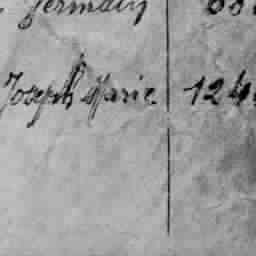 Germany
Joseph Marie 124